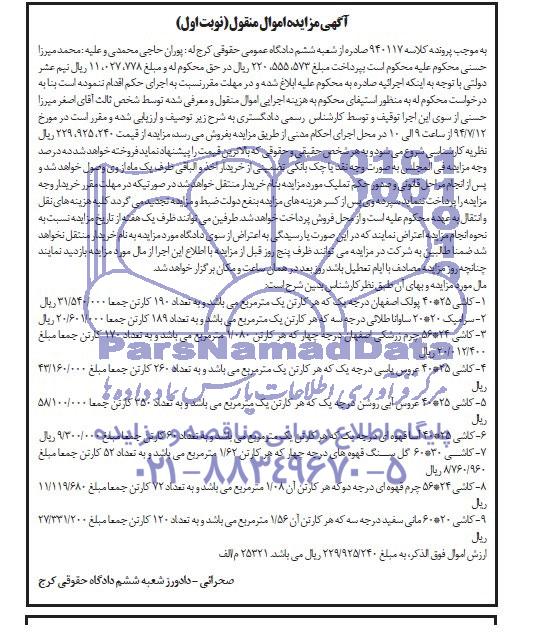 آگهی مزایده اموال منقول (نوبت اول)
به موجب پرونده کلاسه ۹۴۰۱۱۷ صادره از شعبه ششم دادگاه عمومی حقوقی کرج له : پوران حاجی محمدی و علیه : محمد میرزا
حسنی محکوم علیه محکوم است بپرداخت مبلغ ۲۲۰،۵۵۵،۵۷۳ ریال در حق محکوم له و مبلغ ۱۱،۰۲۷،۷۷۸ ریال نیم عشر
دولتی با توجه به اینکه اجرائیه صادره به محکوم علیه ابلاغ شده و در مهلت مقرر نسبت به اجرای حکم اقدام ننموده است بنا به
درخواست محکوم له به منظور استیفای محکوم به هزینه اجرایی اموال منقول و معرفی شده توسط شخص ثالث آقای اصغر میرزا
حسنی از سوی این اجرا توقیف و توسط کارشناس رسمی دادگستری به شرح زیر توصیف و ارزیابی شده و مقرر است در مورخ
۹۴/۷/۱۲ از ساعت ۹ الی ۱۰ در محل اجرای احکام مدنی از طریق مزایده بفروش می رسد، مزایده از قیمت ۲۲۹،۹۲۵،۲۴۰ ریال
نظریه کارشناسی شروع می شود و به هر شخص حقیقی و حقوقی که بالاترین قیمت را پیشنهاد نماید فروخته خواهد شد ده درصد
وجه مزایده فی المجلس به صورت وجه نقد یا چک بانکی تضمینی از خریدار اخذ و الباقی ظرف یک ماه از وی وصول خواهد شد و
پس از انجام مراحل قانونی و صدور حکم تملیک مورد مزایده بنام خریدار منتقل خواهد شد در صورتیکه در مهلت مقرر خریدار وجه
مزایده را پرداخت ننماید سپرده وی پس از کسر هزینه های مزایده بنفع دولت ضبط و مزایده تجدید می گردد کلیه هزینه های نقل
و انتقال به عهده محکوم علیه است و از محل فروش پرداخت خواهد شد. طرفین می توانند ظرف یک هفته از تاریخ مزایده نسبت به
نحوه انجام مزایده اعتراض نمایند که در این صورت با رسیدگی به اعتراض از سوی دادگاه مورد مزایده به نام خریدار منتقل نخواهد
شد ضمنا طالبین به شرکت در مزایده می توانند ظرف پنج روز قبل از مزایده با اطلاع این اجرا از مال مورد مزایده بازدید نمایند
چنانچه روز مزایده مصادف با ایام تعطیل باشد روز بعد در همان ساعت و مکان برگزار خواهد شد.
مال مورد مزایده و بهای آن طبق نظر کارشناس بدین شرح است:
۱- کاشی ۲۵*۴۰ پولک اصفهان درجه یک که هر کارتن یک مترمربع می باشد و به تعداد ۱۹۰ کارتن جمعا ۳۱/۵۴۰/۰۰۰ ریال
۲- سرامیک ۲۰*۲۰ ساوانا طلائی درجه سه که هر کارتن یک مترمربع می باشد و به تعداد ۱۸۹ کارتن جمعا ۲۰/۶۰۱/۰۰۰ ریال
۳- کاشی ۲۴*۵۶ چرم زرشکی اصفهان درجه چهار که هر کارتن ۱/۰۸۰ مترمربع می باشد و به تعداد ۱۷۰ کارتن جمعا مبلغ
۲۰/۰۱۲/۴۰۰ ریال
۴- کاشی ۲۵*۴۰ عروس یاسی درجه یک که هر کارتن یک مترمربع می باشد و به تعداد ۲۶۰ کارتن جمعا مبلغ ۴۳/۱۶۰/۰۰۰
ریال
۵- کاشی ۲۵*۴۰ عروس آبی روشن درجه یک که هر کارتن یک مترمربع می باشد و به تعداد ۳۵۰ کارتن جمعا ۵۸/۱۰۰/۰۰۰
ریال
۶- کاشی ۲۵*۴۰ آسا قهوه ای درجه یک که هر کارتن یک مترمربع می باشد و به تعداد ۶۰ کارتن جمعا مبلغ ۹/۳۰۰/۰۰۰ ریال
۷- کاشی ۳۰*۶۰ گل سنگ قهوه های درجه چهار که هر کارتن ۱/۶۲ مترمربع می باشد و به تعداد ۵۲ کارتن جمعا مبلغ
۸/۷۶۰/۹۶۰ ریال
۸- کاشی ۲۴*۵۶ چرم قهوه ای درجه دو که هر کارتن آن ۱/۰۸ مترمربع می باشد و به تعداد ۷۲ کارتن جمعا مبلغ ۱۱/۱۱۹/۶۸۰
ریال
۹- کاشی ۲۰*۶۰ مانی سفید درجه سه که هر کارتن آن ۱/۵۶ مترمربع می باشد و به تعداد ۱۲۰ کارتن جمعا مبلغ ۲۷/۳۳۱/۲۰۰
ریال
ارزش اموال فوق الذکر، به مبلغ ۲۲۹/۹۲۵/۲۴۰ ریال می باشد. ۲۵۳۲۱ م/الف
صحرائی - دادورز شعبه ششم دادگاه حقوقی کرج
ParsNamadData
مرکز فرآوری اطلاعات پارس نماد داده ها
پایگاه اطلاع رسانی مناقصه و مزایده
۰۲۱-۸۸۳۴۹۶۷۰-۵